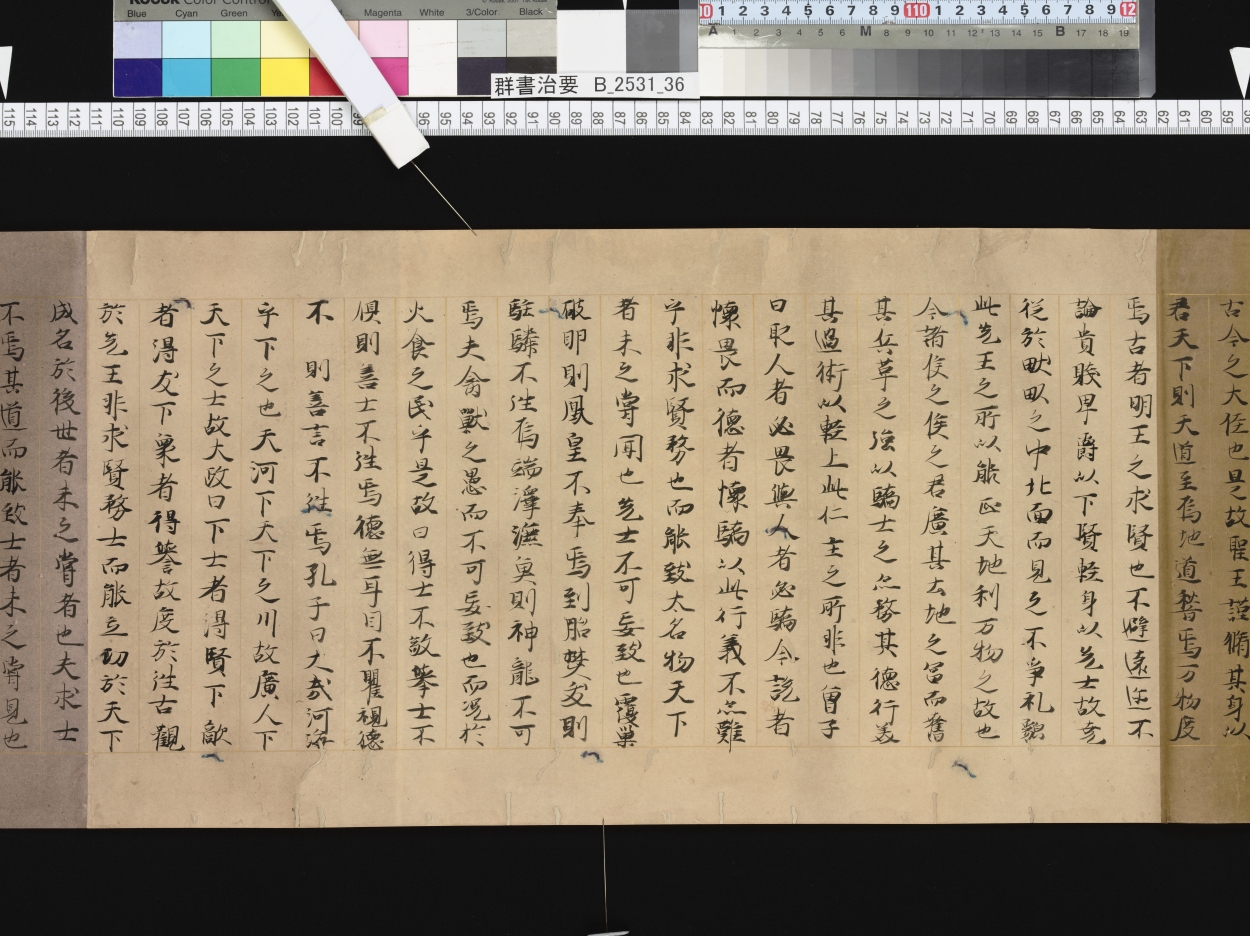 古今之大徑也是故聖王謹脩其身以
君天下則天道至焉地道稽焉万物度
焉古者明王之求賢也不避遠近不
論貴賤卑爵以下賢輕身以先士故堯
從於畎畝之中北面而見之不爭礼貌
此先王之所以能正天地利万物之故也
今諸侯之侯之君廣其土地之富而奮
其兵革之强以驕士之亦務其德行美
其道術以輕上此仁主之所非也曾子
曰取人者必畏與人者必驕今說者
懷畏而德者懷驕以此行義不亦難
乎非求賢務也而能致太名物天下
者未之嘗聞也先士不可妄致也覆巢
破卵則鳳皇不奉焉刳胎焚夭則
騏驎不往焉竭澤漉魚則神龍不可
焉夫禽獸之愚而不可妄致也而况於
火食之民乎是故曰得士不敬舉士不
俱則善士不往焉德無耳目不瞿視德
不 則善言不往焉孔子曰大哉河海
乎下之也天河下天下之川故廣人下
天下之士故大故曰下士者得賢下敵
者得友下衆者得譽故度於往古觀
於先王非求賢務士而能立功於天下
成名於後世者未之嘗者也夫求士
不焉其道而能致士者未之嘗見也
群書治要 B_2531_36